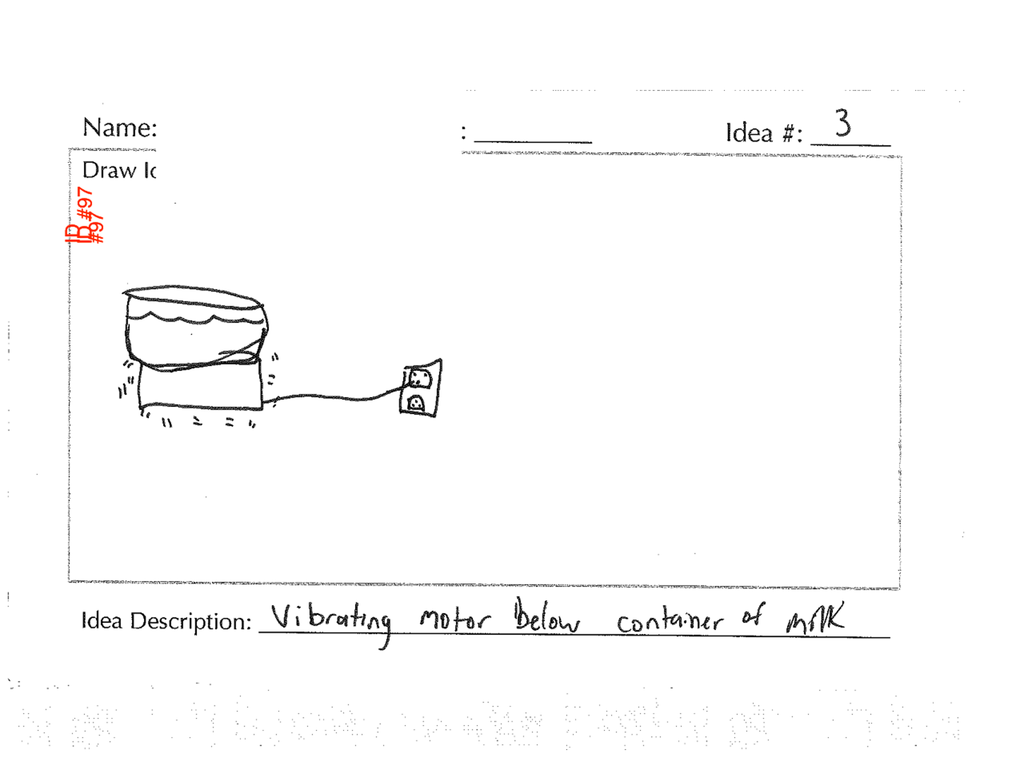 Name:
: Idea #: 3
Draw Id
ID #97
ID #97
Idea Description: Vibrating motor below container of milk